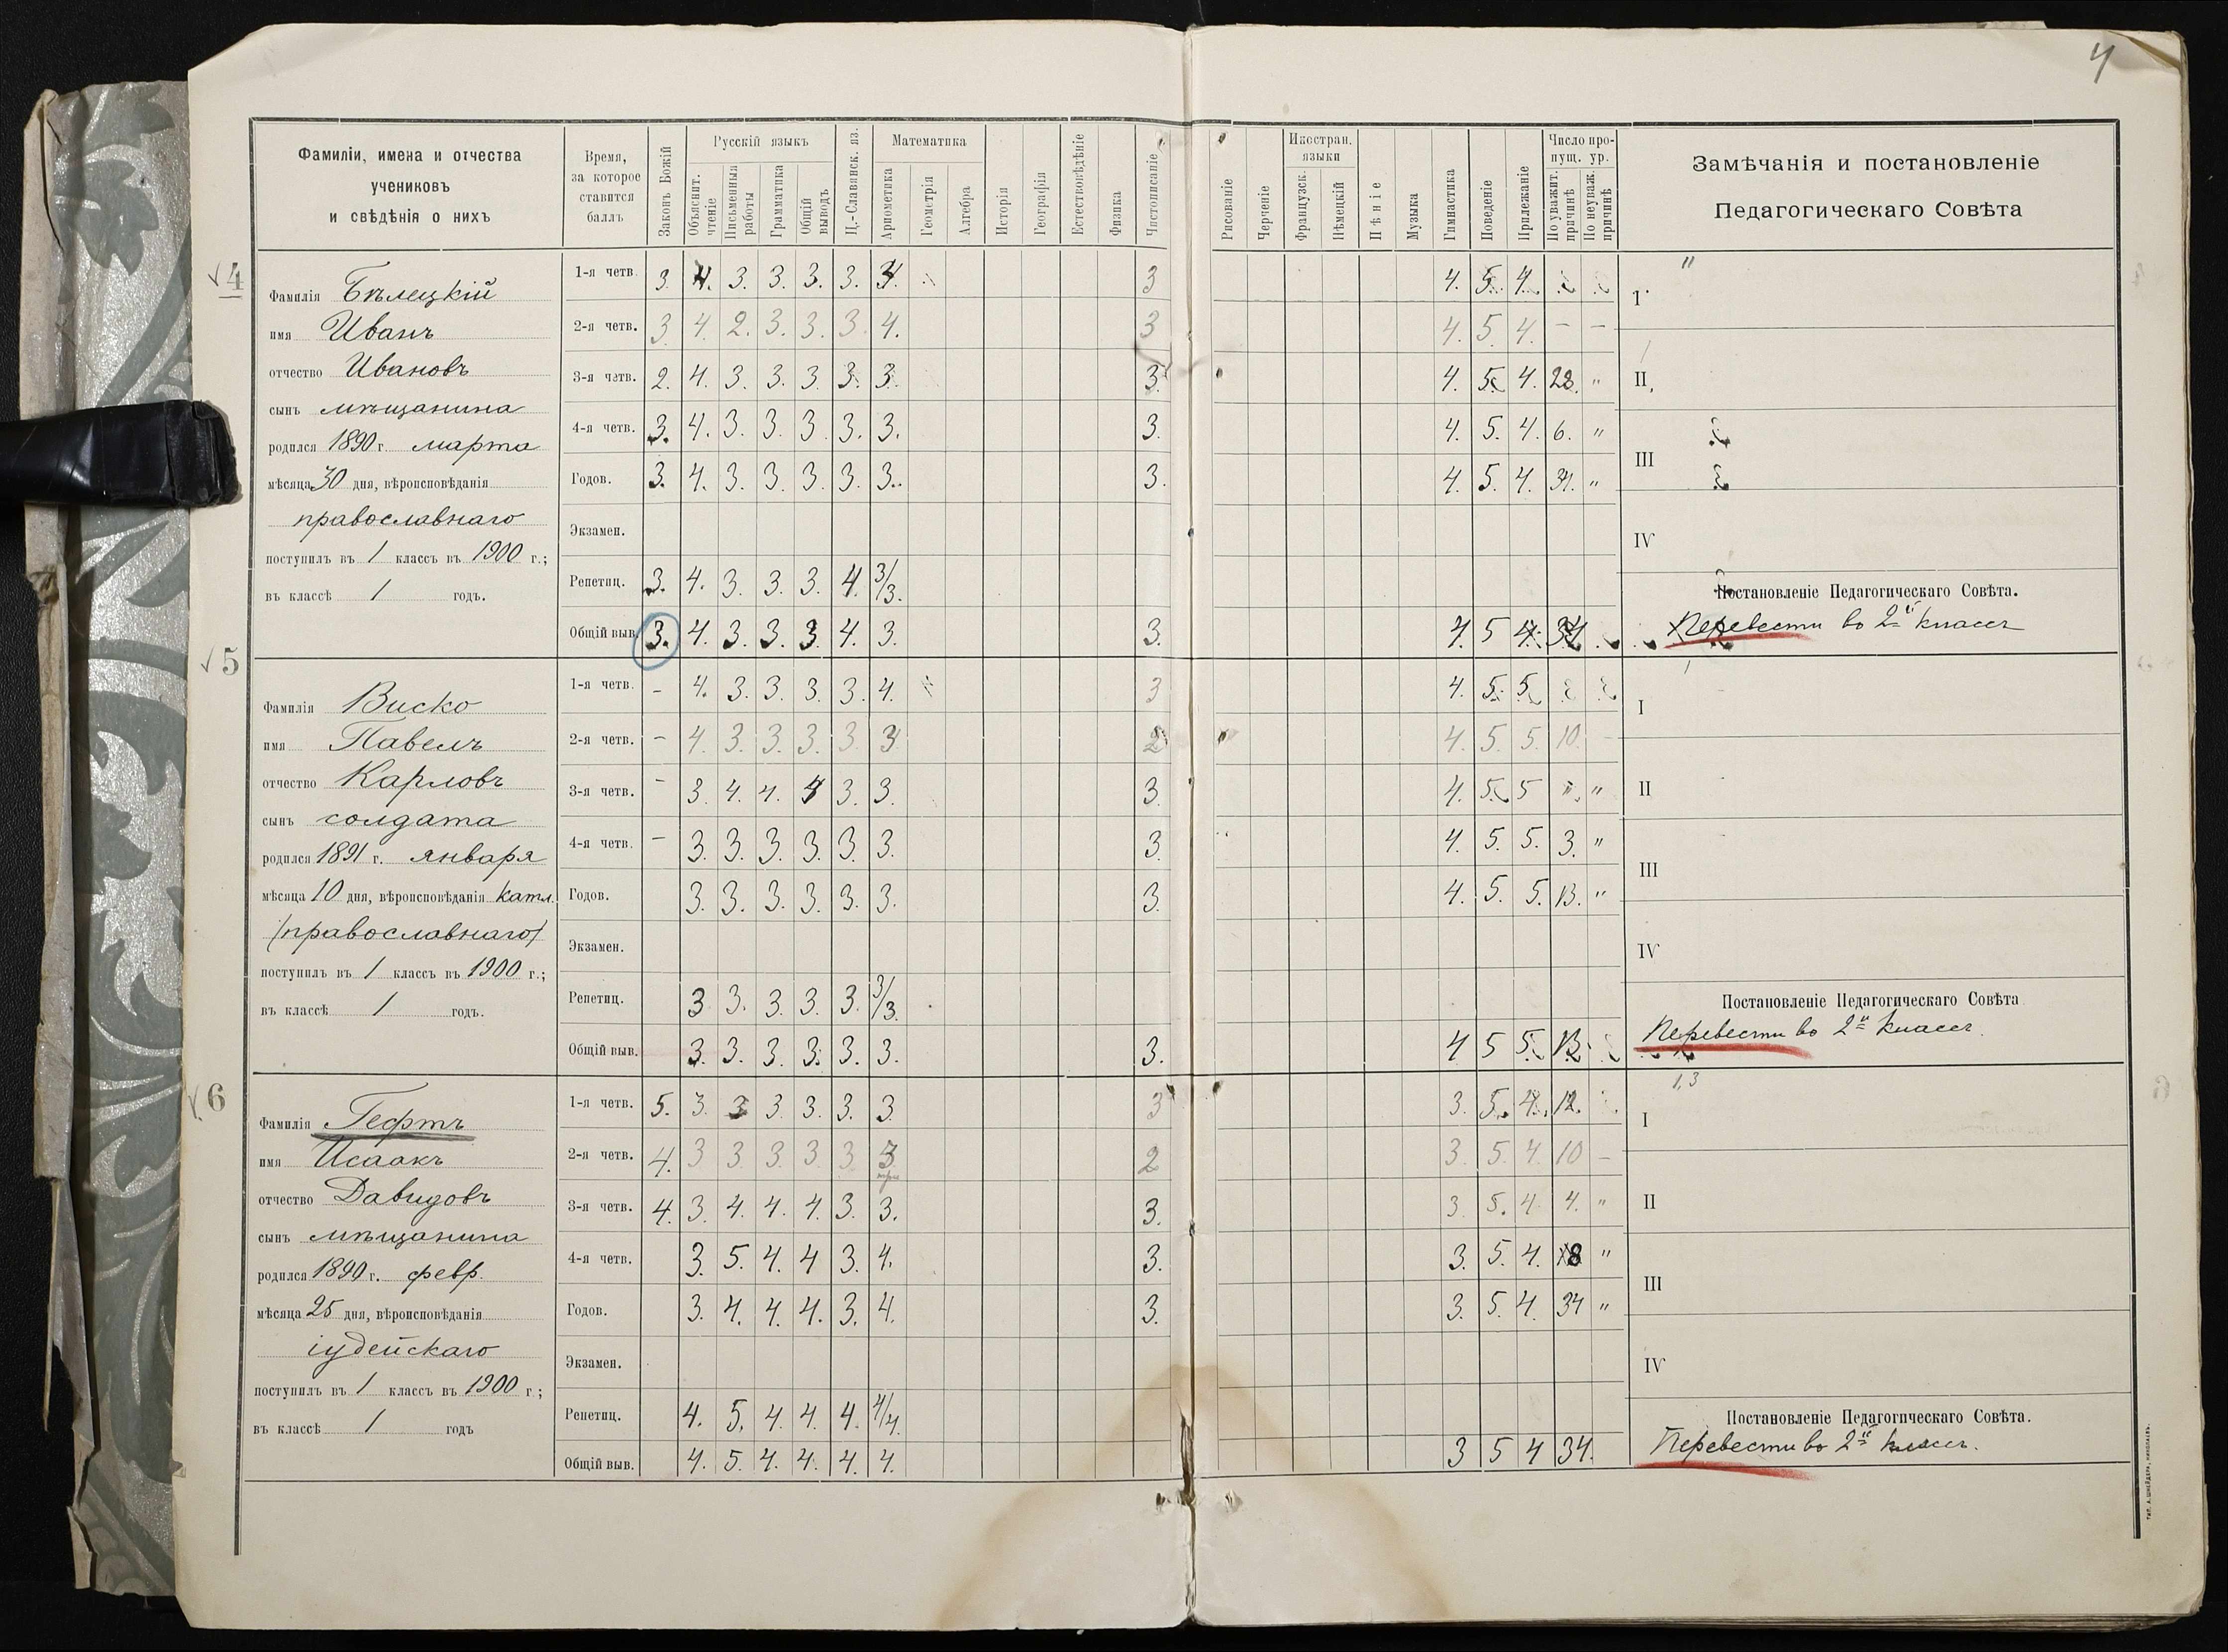 4
Фамиліи, имена и отчества
учениковъ
и свѣдѣнія о нихъ
Время,
за которое
ставится
баллъ
Законъ Божій
Русскій языкъ
Объяснит.
чтеніе
Письменныя
работы
Грамматика
Общій
выводъ
Ц.-Славянск. яз.
Математика
Ариѳметика
Геометрія
Алгебра
Исторія
Географія
Естествовѣдѣніе
Физика
Чистописаніе
Рисованіе
Черченіе
Иностран.
языки
Французск.
Нѣмецкій
Пѣніе
Музыка
Гимнастика
Поведеніе
Прилежаніе
Число про-
пущ. ур.
По уважит.
причинѣ
По неуваж.
причинѣ
Замѣчанія и постановленіе
Педагогическаго Совѣта
4
Фамилія Бѣлецкій
имя Иванъ
отчество Ивановъ
сынъ мѣщанина
родился 1890 г. марта
мѣсяца 30 дня, вѣроисповѣданія
православнаго
поступилъ въ 1 классъ въ 1900 г.;
въ классѣ 1 годъ.
1-я четв. 3. 4. 3. 3. 3. 3. 3 4. 5. 4.
2-я четв. 3 4. 2. 3. 3. 3. 4. 3 4. 5 4. – –
3-я четв. 2. 4. 3. 3. 3. 3. 3. 3. 4. 5. 4. 28. "
4-я четв. 3. 4. 3. 3. 3. 3. 3. 3. 4. 5. 4. 6. "
Годов. 3. 4. 3. 3. 3. 3. 3. 3. 4. 5. 4. 34. "
Экзамен.
Репетиц. 3. 4. 3. 3. 3. 4. 3/3.
Общій выв. 3. 4. 3. 3. 3. 4. 3. 3. 4. 5 4. 34
I
II
III
IV
Постановленіе Педагогическаго Совѣта.
Перевести во 2й классъ
5
Фамилія Виско
имя Павелъ
отчество Карловъ
сынъ солдата
родился 1891 г. января
мѣсяца 10 дня, вѣроисповѣданія катл.
/православнаго/
поступилъ въ 1 классъ въ 1900 г.;
въ классѣ 1 годъ.
1-я четв. – 4. 3. 3. 3. 3. 4. 3 4. 5. 5.
2-я четв. – 4. 3. 3. 3. 3. 3 2 4. 5. 5. 10. –
3-я четв. – 3. 4. 4. 3. 3. 3. 4. 5. 5 "
4-я четв. – 3. 3. 3. 3. 3. 3. 3. 4. 5. 5. 3. "
Годов. 3. 3. 3. 3. 3. 3. 3. 4. 5. 5. 13. "
Экзамен.
Репетиц. 3 3. 3. 3. 3. 3/3.
Общій выв. 3. 3. 3. 3. 3. 3. 3. 4 5 5. 13.
I
II
III
IV
Постановленіе Педагогическаго Совѣта
Перевести во 2й классъ.
6
Фамилія Гефтъ
имя Исаакъ
отчество Давидовъ
сынъ мѣщанина
родился 1890 г. февр.
мѣсяца 25 дня, вѣроисповѣданія
іудейскаго
поступилъ въ 1 классъ въ 1900 г.;
въ классѣ 1 годъ
1-я четв. 5. 3. 3 3. 3. 3. 3. 3 3. 5. 4. 12.
2-я четв. 4. 3 3. 3. 3. 3. 3. 2 3. 5. 4. 10 –
3-я четв. 4. 3. 4. 4. 4. 3. 3. 3. 3. 5. 4. 4. "
4-я четв. 3. 5. 4. 4 3. 4. 3. 3. 5. 4. 8 "
Годов. 3. 4. 4. 4. 3. 4. 3. 3. 5. 4. 34 "
Экзамен.
Репетиц. 4. 5. 4. 4. 4. 4/4.
Общій выв. 4. 5. 4. 4. 4. 4. 3 5 4 34.
1,3
I
II
III
IV
Постановленіе Педагогическаго Совѣта.
Перевести во 2й классъ.